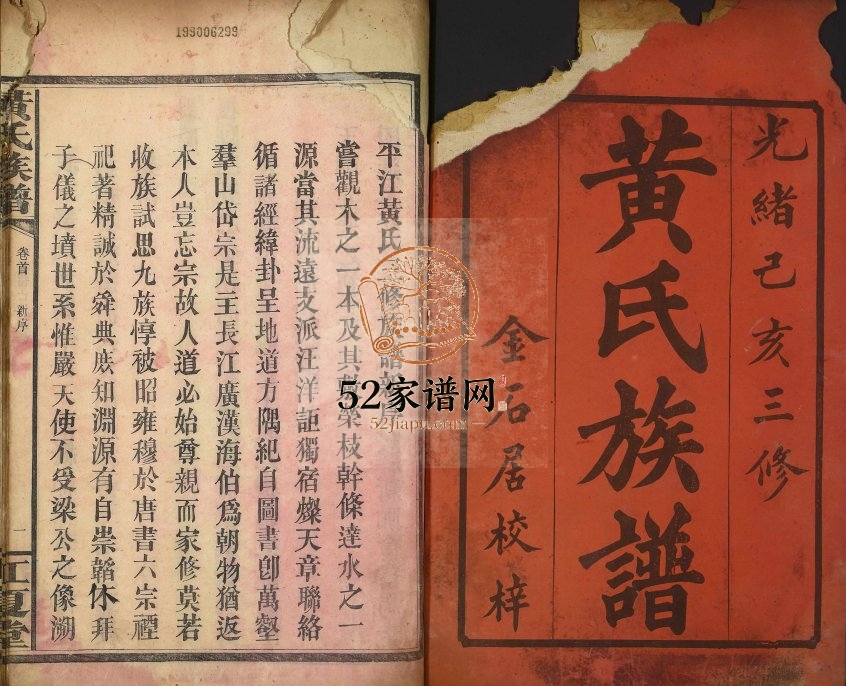 光緒己亥三修
黃氏族譜
金石居校梓
199006299
平江黃氏三修族譜新序
嘗觀木之一本及其發榮枝幹條達水之一
源當其流遠支派汪洋詎獨宿燦天章聯絡
循諸經緯卦呈地道方隅紀自圖書卽萬壑
羣山岱宗是主長江廣漢海伯爲朝物猶返
本人豈忘宗故人道必始尊親而家修莫若
收族試思九族惇被昭雍穆於唐書六宗禋
祀著精誠於舜典庶知淵源有自崇韜休拜
子儀之墳世系惟嚴天使不受梁公之像溯
黃氏族譜
卷首
新序
一
江夏堂
52家谱网
52jiapu.com